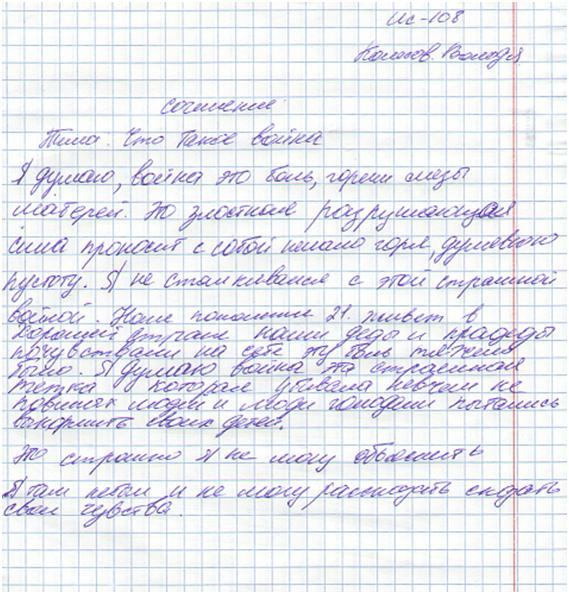 Ис-108
Володя
сочинение.
Тима. Что такое война
Я думаю, война это боль, горечи слезы
матерей. это злостная разрушающая
сила проносит с собой немало горя, душевною
пустоту. Я не сталкивался с этой страшной
войной. Наше поколение 21. живет в
хорошей стране наши деды и прадеды
почувствали на себе эту боль тяжело
было. Я думаю война эта страшная
которая убивала невчем не
повиных людей и люди голодали пытались
накормить своих детей.
это страшно Я не могу объяснить
Я там небыл и не могу
свои чувства.